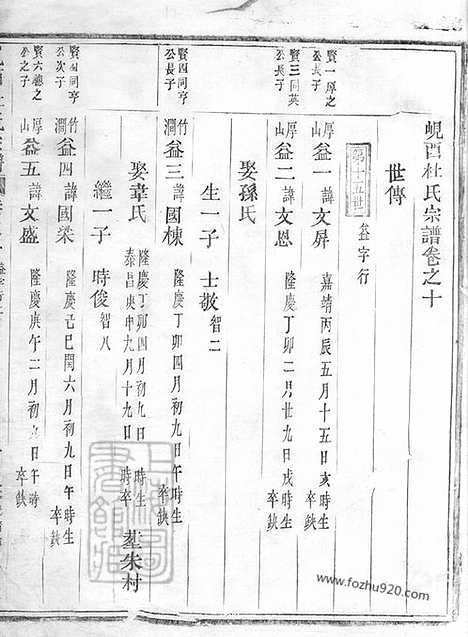 峴西杜氏宗譜卷之十
世傳
第十五世 益字行
賢一厚之公長子
厚山 益一 諱文屏 嘉靖丙辰五月十五日亥時生 卒缺
賢三同英公長子
厚山 益二 諱文恩 隆慶丁卯二月廿九日戌時生 卒缺
娶孫氏
生一子 士敬 智二
賢四同亨公長子
竹澗 益三 諱國棟 隆慶丁卯四月初九日午時生 卒缺
娶韋氏 隆慶丁卯四月初九日 時生 泰昌庚申九月十九日 時卒 塟朱村
繼一子 時俊 智八
賢四同亨公次子
竹澗 益四 諱國梁 隆慶己巳閏六月初九日午時生 卒缺
賢六德之公之子
厚山 益五 諱文盛 隆慶庚午二月初九日午時生 卒缺
www.fozhu920.com